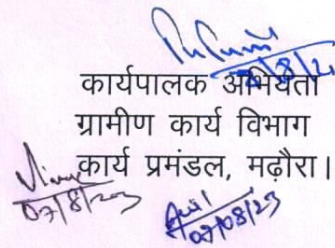 कार्यपालक अभियंता
ग्रामीण कार्य विभाग
कार्य प्रमंडल, मढ़ौरा।
07/8/23
07/08/23